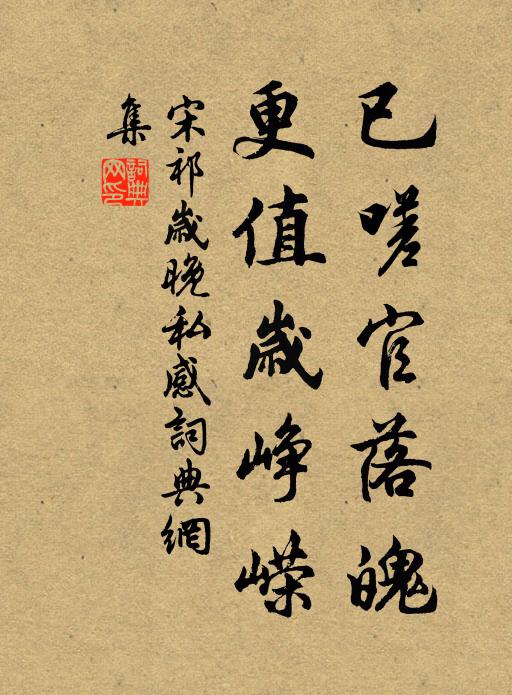 已嗟官落魄
更值歲峥嶸
宋祁歲晚私感詞典網
集
詞典
网印